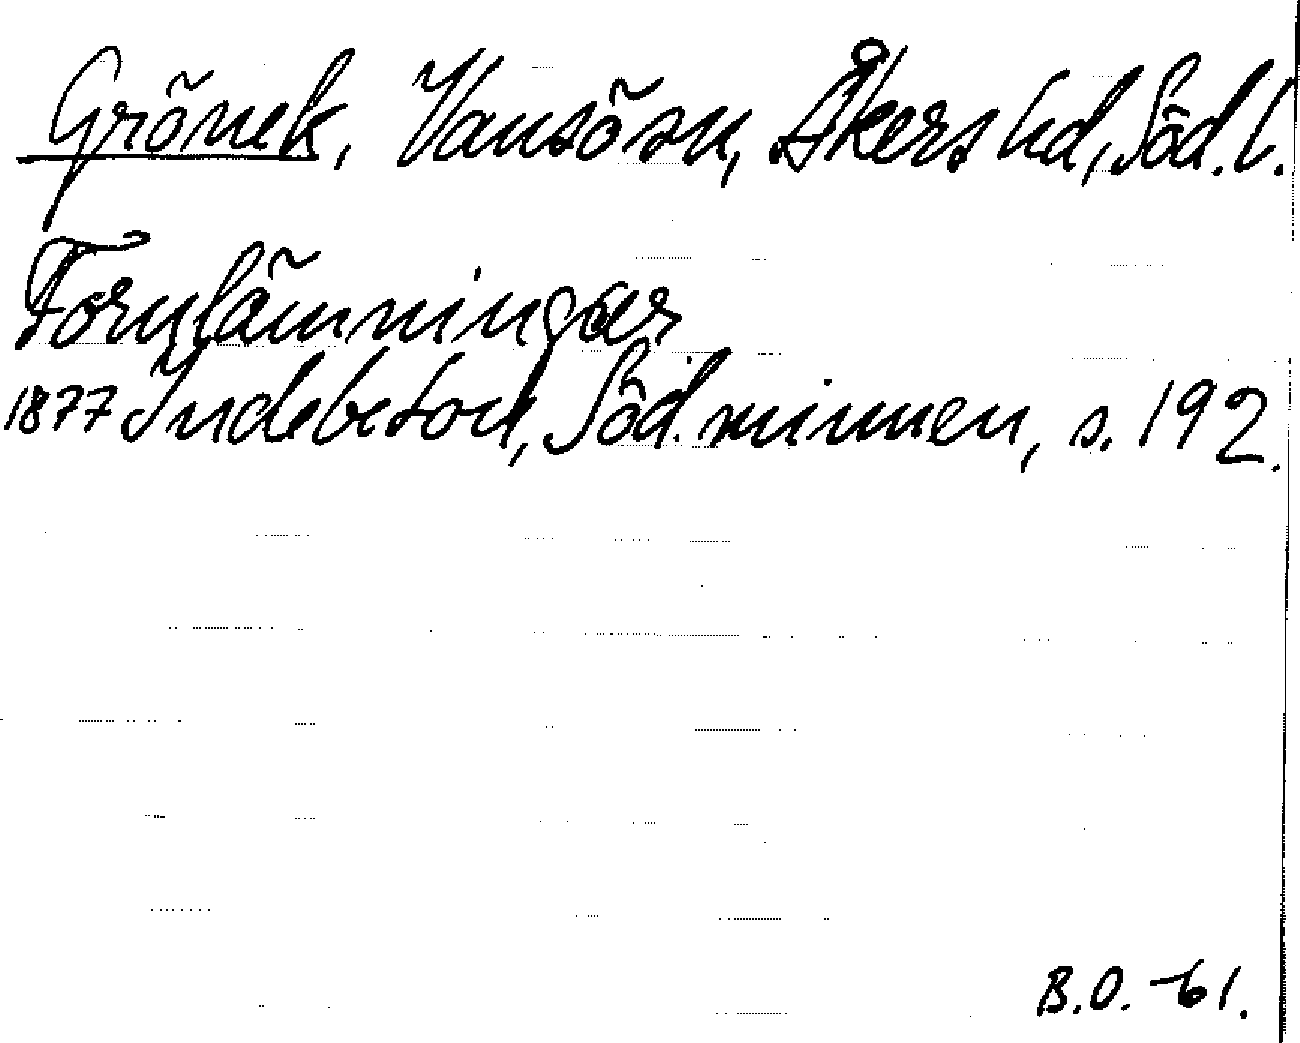 Grönek, Vansösn, Åkers hd, Söd.l.
Fornlämningar
1877 Indebetou, Söd. minnen, s. 192.
B.O. -61.